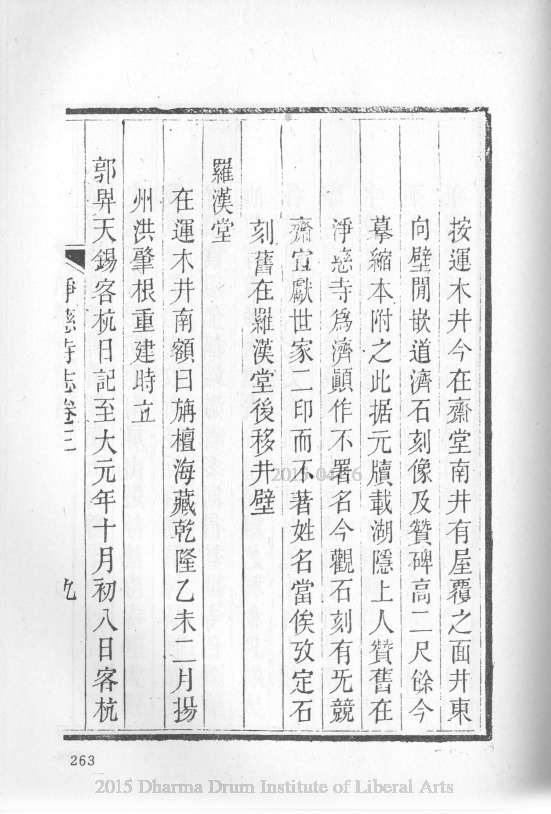 按運木井今在齋堂南井有屋覆之面井東
向壁間嵌道濟石刻像及贊碑高二尺餘今
摹縮本附之此据元牘載湖隱上人贊舊在
淨慈寺爲濟顚作不署名今觀石刻有旡競
齋宜獻世家二印而不著姓名當俟攷定石
刻舊在羅漢堂後移井壁
羅漢堂
在運木井南額曰旃檀海藏乾隆乙未二月揚
州洪肇根重建時立
郭畀天錫客杭日記至大元年十月初八日客杭
淨慈寺志卷三
九
2015-04-16
263
2015 Dharma Drum Institute of Liberal Arts